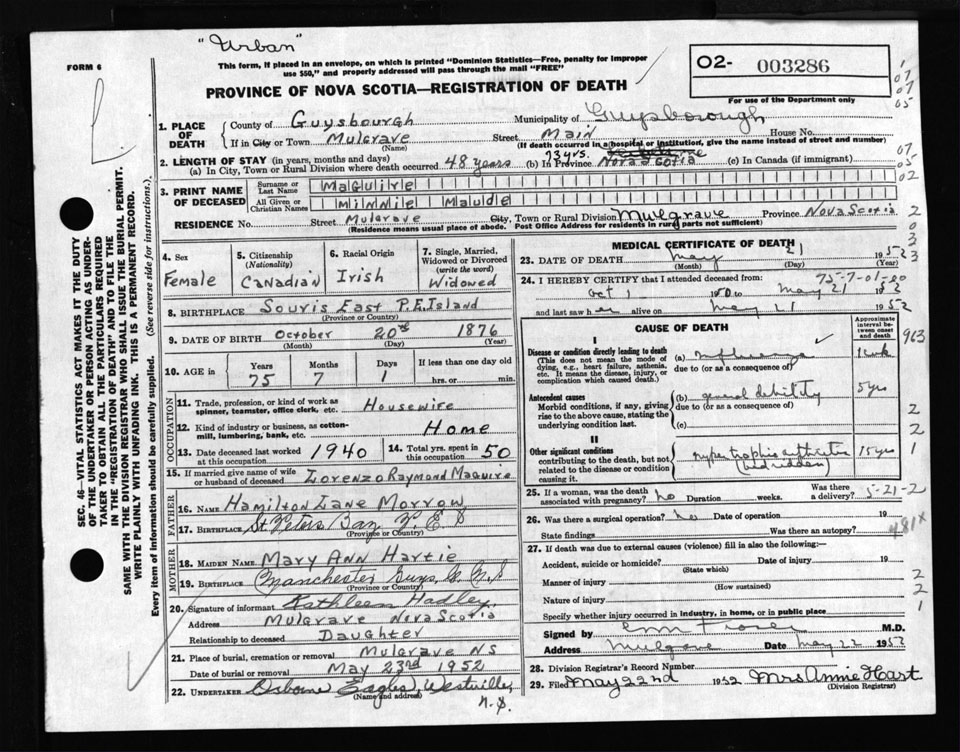 "Urban"
FORM 6
This form, if placed in an envelope, on which is printed "Dominion Statistics—Free, penalty for improper
use $50," and properly addressed will pass through the mail "FREE"
O2- 003286
For use of the Department only
PROVINCE OF NOVA SCOTIA—REGISTRATION OF DEATH
1. PLACE OF DEATH
County of Guysbourgh Municipality of Guysborough
If in City or Town Mulgrave (Name) Street Main House No.
(If death occurred in a hospital or institution, give the name instead of street and number)
2. LENGTH OF STAY (in years, months and days)
(a) In City, Town or Rural Division where death occurred 48 years (b) In Province 73 yrs. Nova Scotia (c) In Canada (if immigrant)
3. PRINT NAME OF DECEASED
Surname or Last Name Maguire
All Given or Christian Names Minnie Maude
RESIDENCE No. Street Mulgrave City, Town or Rural Division Mulgrave Province Nova Scotia
(Residence means usual place of abode. Post Office Address for residents in rural parts not sufficient)
4. Sex Female
5. Citizenship (Nationality) Canadian
6. Racial Origin Irish
7. Single, Married, Widowed or Divorced (write the word) Widowed
8. BIRTHPLACE Souris East P.E.Island
(Province or Country)
9. DATE OF BIRTH October 20th 1876
(Month) (Day) (Year)
10. AGE in Years 75 Months 7 Days 1 If less than one day old hrs. or min.
OCCUPATION
11. Trade, profession, or kind of work as spinner, teamster, office clerk, etc. Housewife
12. Kind of industry or business, as cotton-mill, lumbering, bank, etc. Home
13. Date deceased last worked at this occupation 1940
14. Total yrs. spent in this occupation 50
15. If married give name of wife or husband of deceased Lorenzo Raymond Maguire
FATHER
16. NAME Hamilton Lane Morrow
17. BIRTHPLACE St Peters Bay P.E.I
(Province or Country)
MOTHER
18. MAIDEN NAME Mary Ann Hartie
19. BIRTHPLACE Manchester Guys. Co N.S
(Province or Country)
20. Signature of informant Kathleen Hadley
Address Mulgrave Nova Scotia
Relationship to deceased Daughter
21. Place of burial, cremation or removal Mulgrave NS
Date of burial or removal May 23rd 1952
22. UNDERTAKER Osborne Eagles, Westville,
(Name and address)
N.S.
MEDICAL CERTIFICATE OF DEATH
23. DATE OF DEATH May 21 1952
(Month) (Day) (Year)
75-7-01-00
24. I HEREBY CERTIFY that I attended deceased from:
Oct 1 1950 to May 21 1952
and last saw her alive on May 21 1952
CAUSE OF DEATH
Approximate interval between onset and death
I
Disease or condition directly leading to death (a) Influenza 1 wk
(This does not mean the mode of dying, e.g., heart failure, asthenia, etc. It means the disease, injury, or complication which caused death.)
due to (or as a consequence of)
Antecedent causes (b) general debility 5 yrs
Morbid conditions, if any, giving rise to the above cause, stating the underlying condition last.
due to (or as a consequence of)
(c)
II
Other significant conditions Hypertrophic arthritis 15 yrs
contributing to the death, but not related to the disease or condition causing it. (bed ridden)
25. If a woman, was the death associated with pregnancy? No Duration weeks. Was there a delivery? 5-21-2
26. Was there a surgical operation? No Date of operation 19
State findings Was there an autopsy? 481X
27. If death was due to external causes (violence) fill in also the following:—
Accident, suicide or homicide? Date of injury 19
(State which)
Manner of injury
(How sustained)
Nature of injury
Specify whether injury occurred in industry, in home, or in public place
Signed by M.D.
Address Mulgrave Date May 22 1952
28. Division Registrar's Record Number
29. Filed May 22nd 1952 Mrs Annie Hart
(Division Registrar)
SEC. 46—VITAL STATISTICS ACT MAKES IT THE DUTY
OF THE UNDERTAKER OR PERSON ACTING AS UNDER-
TAKER TO OBTAIN ALL THE PARTICULARS REQUIRED
IN THE "REGISTRATION OF DEATH" AND TO FILE THE
SAME WITH THE DIVISION REGISTRAR WHO SHALL ISSUE THE BURIAL PERMIT.
WRITE PLAINLY WITH UNFADING INK. THIS IS A PERMANENT RECORD.
Every item of information should be carefully supplied. (See reverse side for instructions.)